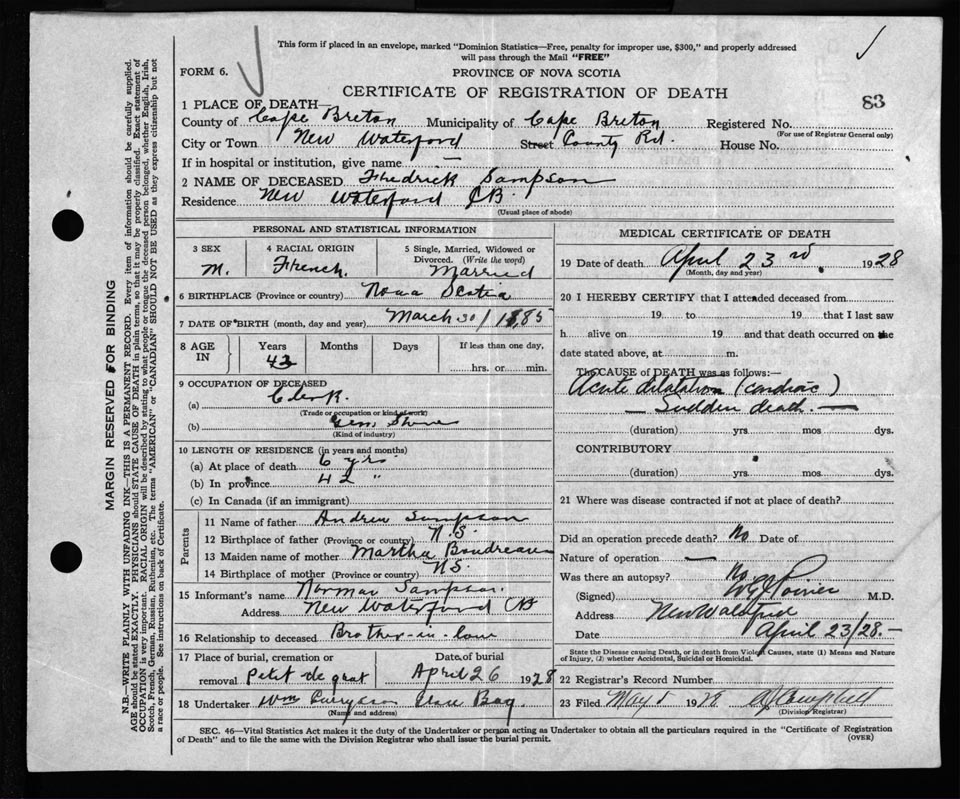 This form if placed in an envelope, marked "Dominion Statistics—Free, penalty for improper use, $300," and properly addressed
will pass through the Mail "FREE"
FORM 6.
PROVINCE OF NOVA SCOTIA
CERTIFICATE OF REGISTRATION OF DEATH
83
1 PLACE OF DEATH
County of Cape Breton Municipality of Cape Breton Registered No.
(For use of Registrar General only)
City or Town New Waterford Street County Rd. House No.
If in hospital or institution, give name —
2 NAME OF DECEASED Fredrick Sampson
Residence New Waterford CB.
(Usual place of abode)
PERSONAL AND STATISTICAL INFORMATION
3 SEX
M.
4 RACIAL ORIGIN
French.
5 Single, Married, Widowed or
Divorced. (Write the word)
Married
6 BIRTHPLACE (Province or country) Nova Scotia
7 DATE OF BIRTH (month, day and year) March 30/1885
8 AGE IN
Years
43
Months
Days
If less than one day,
hrs. or min.
9 OCCUPATION OF DECEASED
(a) Clerk.
(Trade or occupation or kind of work)
(b) Gen. Store
(Kind of industry)
10 LENGTH OF RESIDENCE (in years and months)
(a) At place of death 6 yrs
(b) In province 42 "
(c) In Canada (if an immigrant)
Parents
11 Name of father Andrew Sampson
12 Birthplace of father (Province or country) N.S.
13 Maiden name of mother Martha Boudreau
14 Birthplace of mother (Province or country) NS.
15 Informant's name Norman Sampson.
Address New Waterford CB
16 Relationship to deceased Brother-in-law
17 Place of burial, cremation or
removal Petit de grat
Date of burial
April 26 1928
18 Undertaker Wm
(Name and address)
MEDICAL CERTIFICATE OF DEATH
19 Date of death April 23rd 1928
(Month, day and year)
20 I HEREBY CERTIFY that I attended deceased from
19 to 19 that I last saw
h alive on 19 and that death occurred on the
date stated above, at m.
The CAUSE of DEATH was as follows:—
Acute dilatation (cardiac)
— Sudden death. —
(duration) yrs. mos. dys.
CONTRIBUTORY
(duration) yrs. mos. dys.
21 Where was disease contracted if not at place of death?
Did an operation precede death? No Date of
Nature of operation —
Was there an autopsy? No.
(Signed) Poirier M.D.
Address New Waterford
Date April 23/28.—
State the Disease causing Death, or in death from Violent Causes, state (1) Means and Nature
of Injury, (2) whether Accidental, Suicidal or Homicidal.
22 Registrar's Record Number
23 Filed May 5 1928 Campbell
(Division Registrar)
SEC. 46—Vital Statistics Act makes it the duty of the Undertaker or person acting as Undertaker to obtain all the particulars required in the "Certificate of Registration
of Death" and to file the same with the Division Registrar who shall issue the burial permit.
(OVER)
MARGIN RESERVED FOR BINDING
N.B.—WRITE PLAINLY WITH UNFADING INK—THIS IS A PERMANENT RECORD. Every item of information should be carefully supplied.
AGE should be stated EXACTLY. PHYSICIANS should STATE CAUSE OF DEATH in plain terms, so that it may be properly classified. Exact statement of
OCCUPATION is very important. RACIAL ORIGIN will be described by stating to what people or tongue the deceased person belonged, whether English, Irish,
Scotch, French, German, Russian, Ruthenian, etc. The terms "AMERICAN" or "CANADIAN" SHOULD NOT BE USED as they express citizenship but not
a race or people. See instructions on back of Certificate.